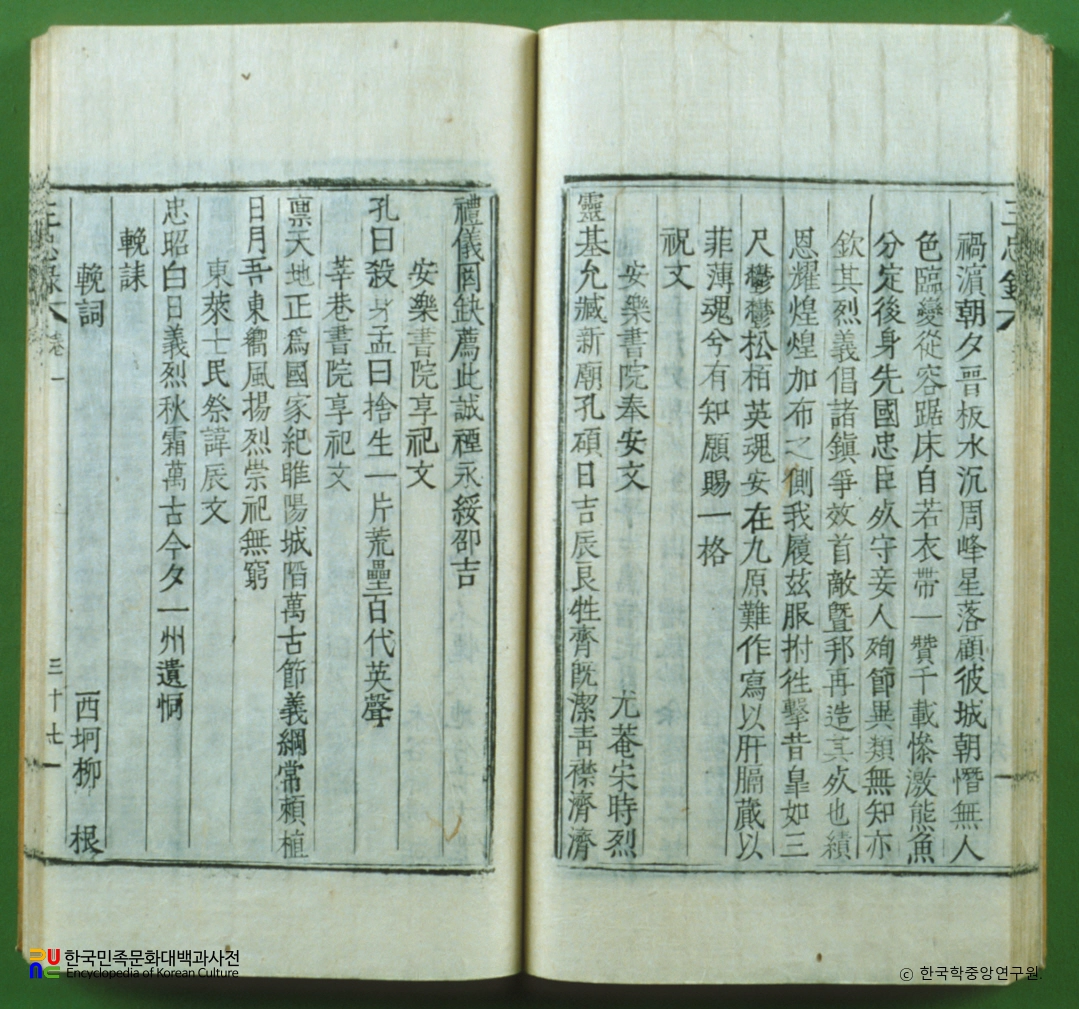 禍濵朝夕晋板水沉周峰星落顧彼城朝憯無人
色臨變從容踞床自若衣帶一贊千載慘激熊魚
分定後身先國忠臣死守妾人殉節異類無知亦
欽其烈義倡諸鎭爭效首敵曁邦再造其死也績
恩耀煌煌加布之側我履茲服拊徃擊昔皐如三
尺鬱鬱松栢英魂安在九原難作寫以肝膈蕆以
菲薄魂兮有知願賜一格
祝文
安樂書院奉安文 尤菴宋時烈
靈基允臧新廟孔碩日吉辰良牲齊旣潔靑襟濟濟
禮儀罔缺薦此誠禋永綏卲吉
安樂書院享祀文
孔曰殺身孟曰捨生一片荒壘百代英聲
莘巷書院享祀文
禀天地正爲國家紀睢陽城陷萬古節義綱常賴植
日月吾東嚮風揚烈崇祀無窮
東萊士民祭諱辰文
忠昭白日義烈秋霜萬古今夕一州遺恫
輓誄
輓詞 西坰柳 根
三十七
한국민족문화대백과사전
Encyclopedia of Korean Culture
© 한국학중앙연구원